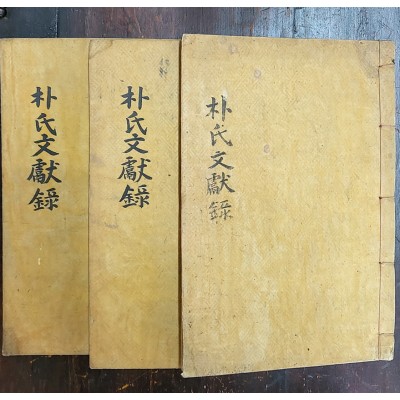 朴氏文獻錄
朴氏文獻錄
朴氏文獻錄